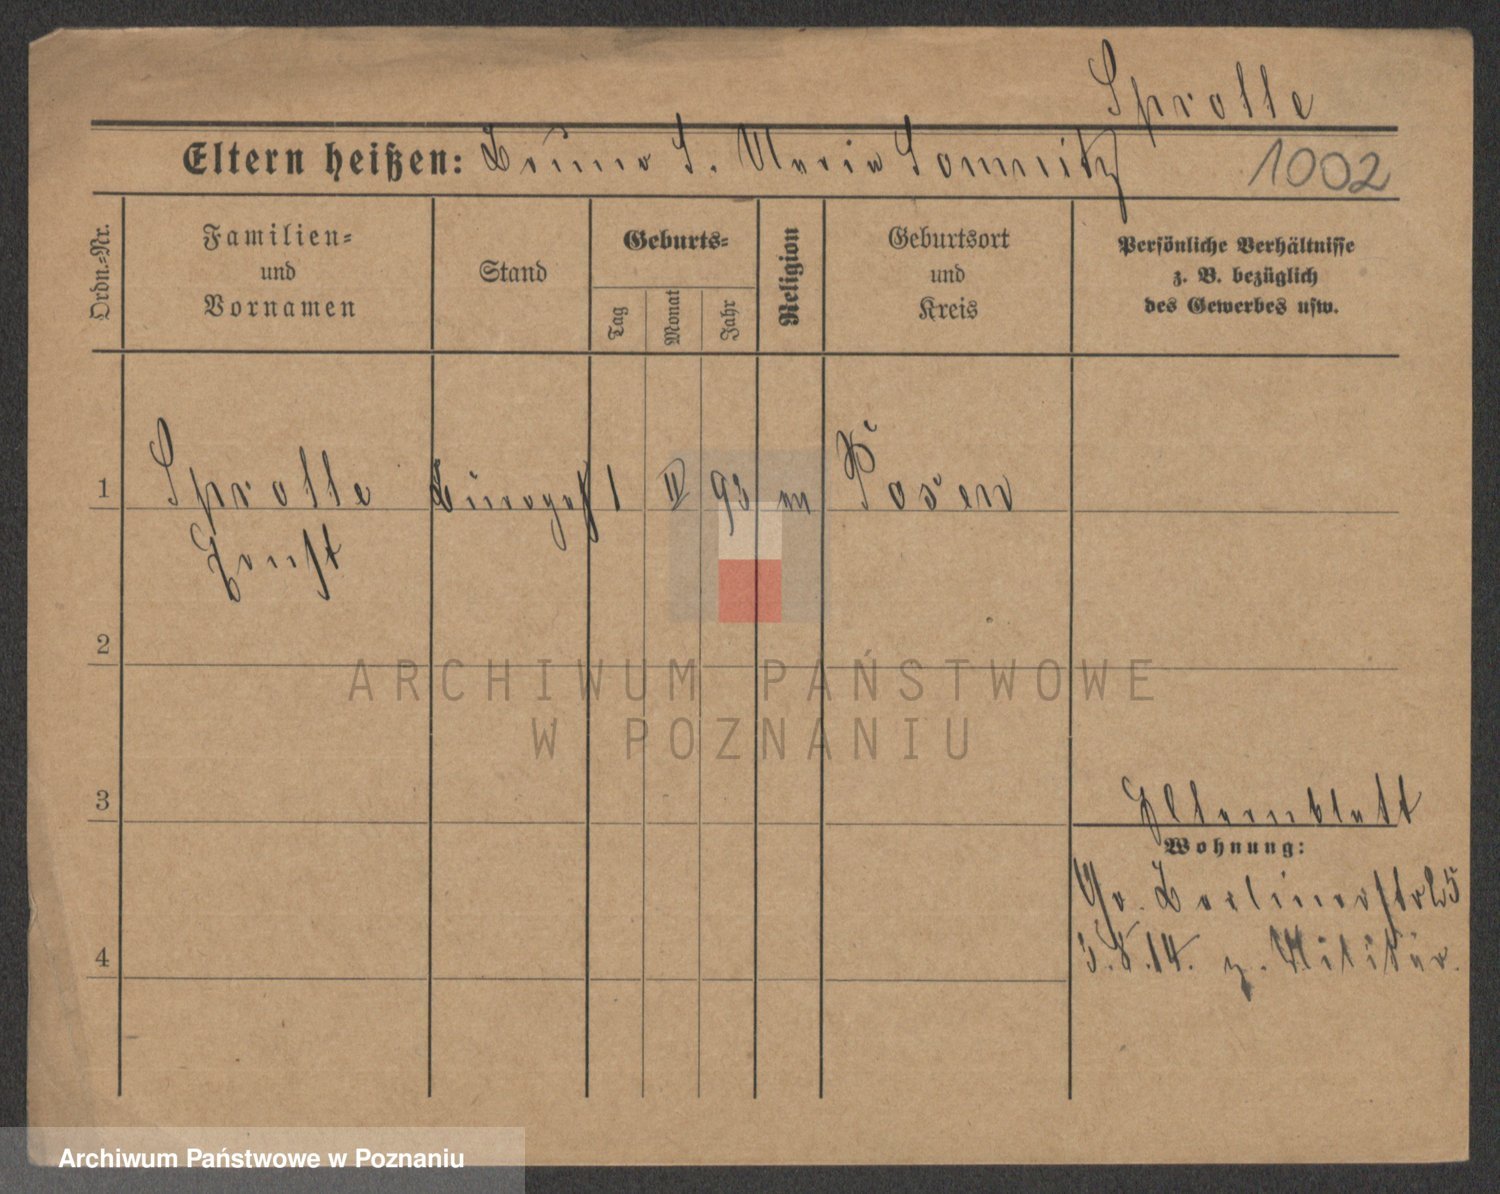 Sprotte
Eltern heißen: Bruno S. Maria Sommitz
1002
Ordn.-Nr.
Familien-
und
Vornamen
Stand
Geburts-
Tag
Monat
Jahr
Religion
Geburtsort
und
Kreis
Persönliche Verhältnisse
z. B. bezüglich
des Gewerbes usw.
1 Sprotte 1 II 93 Posen
Ernst
2
3
4
Elternblatt
Wohnung:
Gr. Berlinerstr 25
5.8.14. z. Militär.
ARCHIWUM PAŃSTWOWE
W POZNANIU
Archiwum Państwowe w Poznaniu